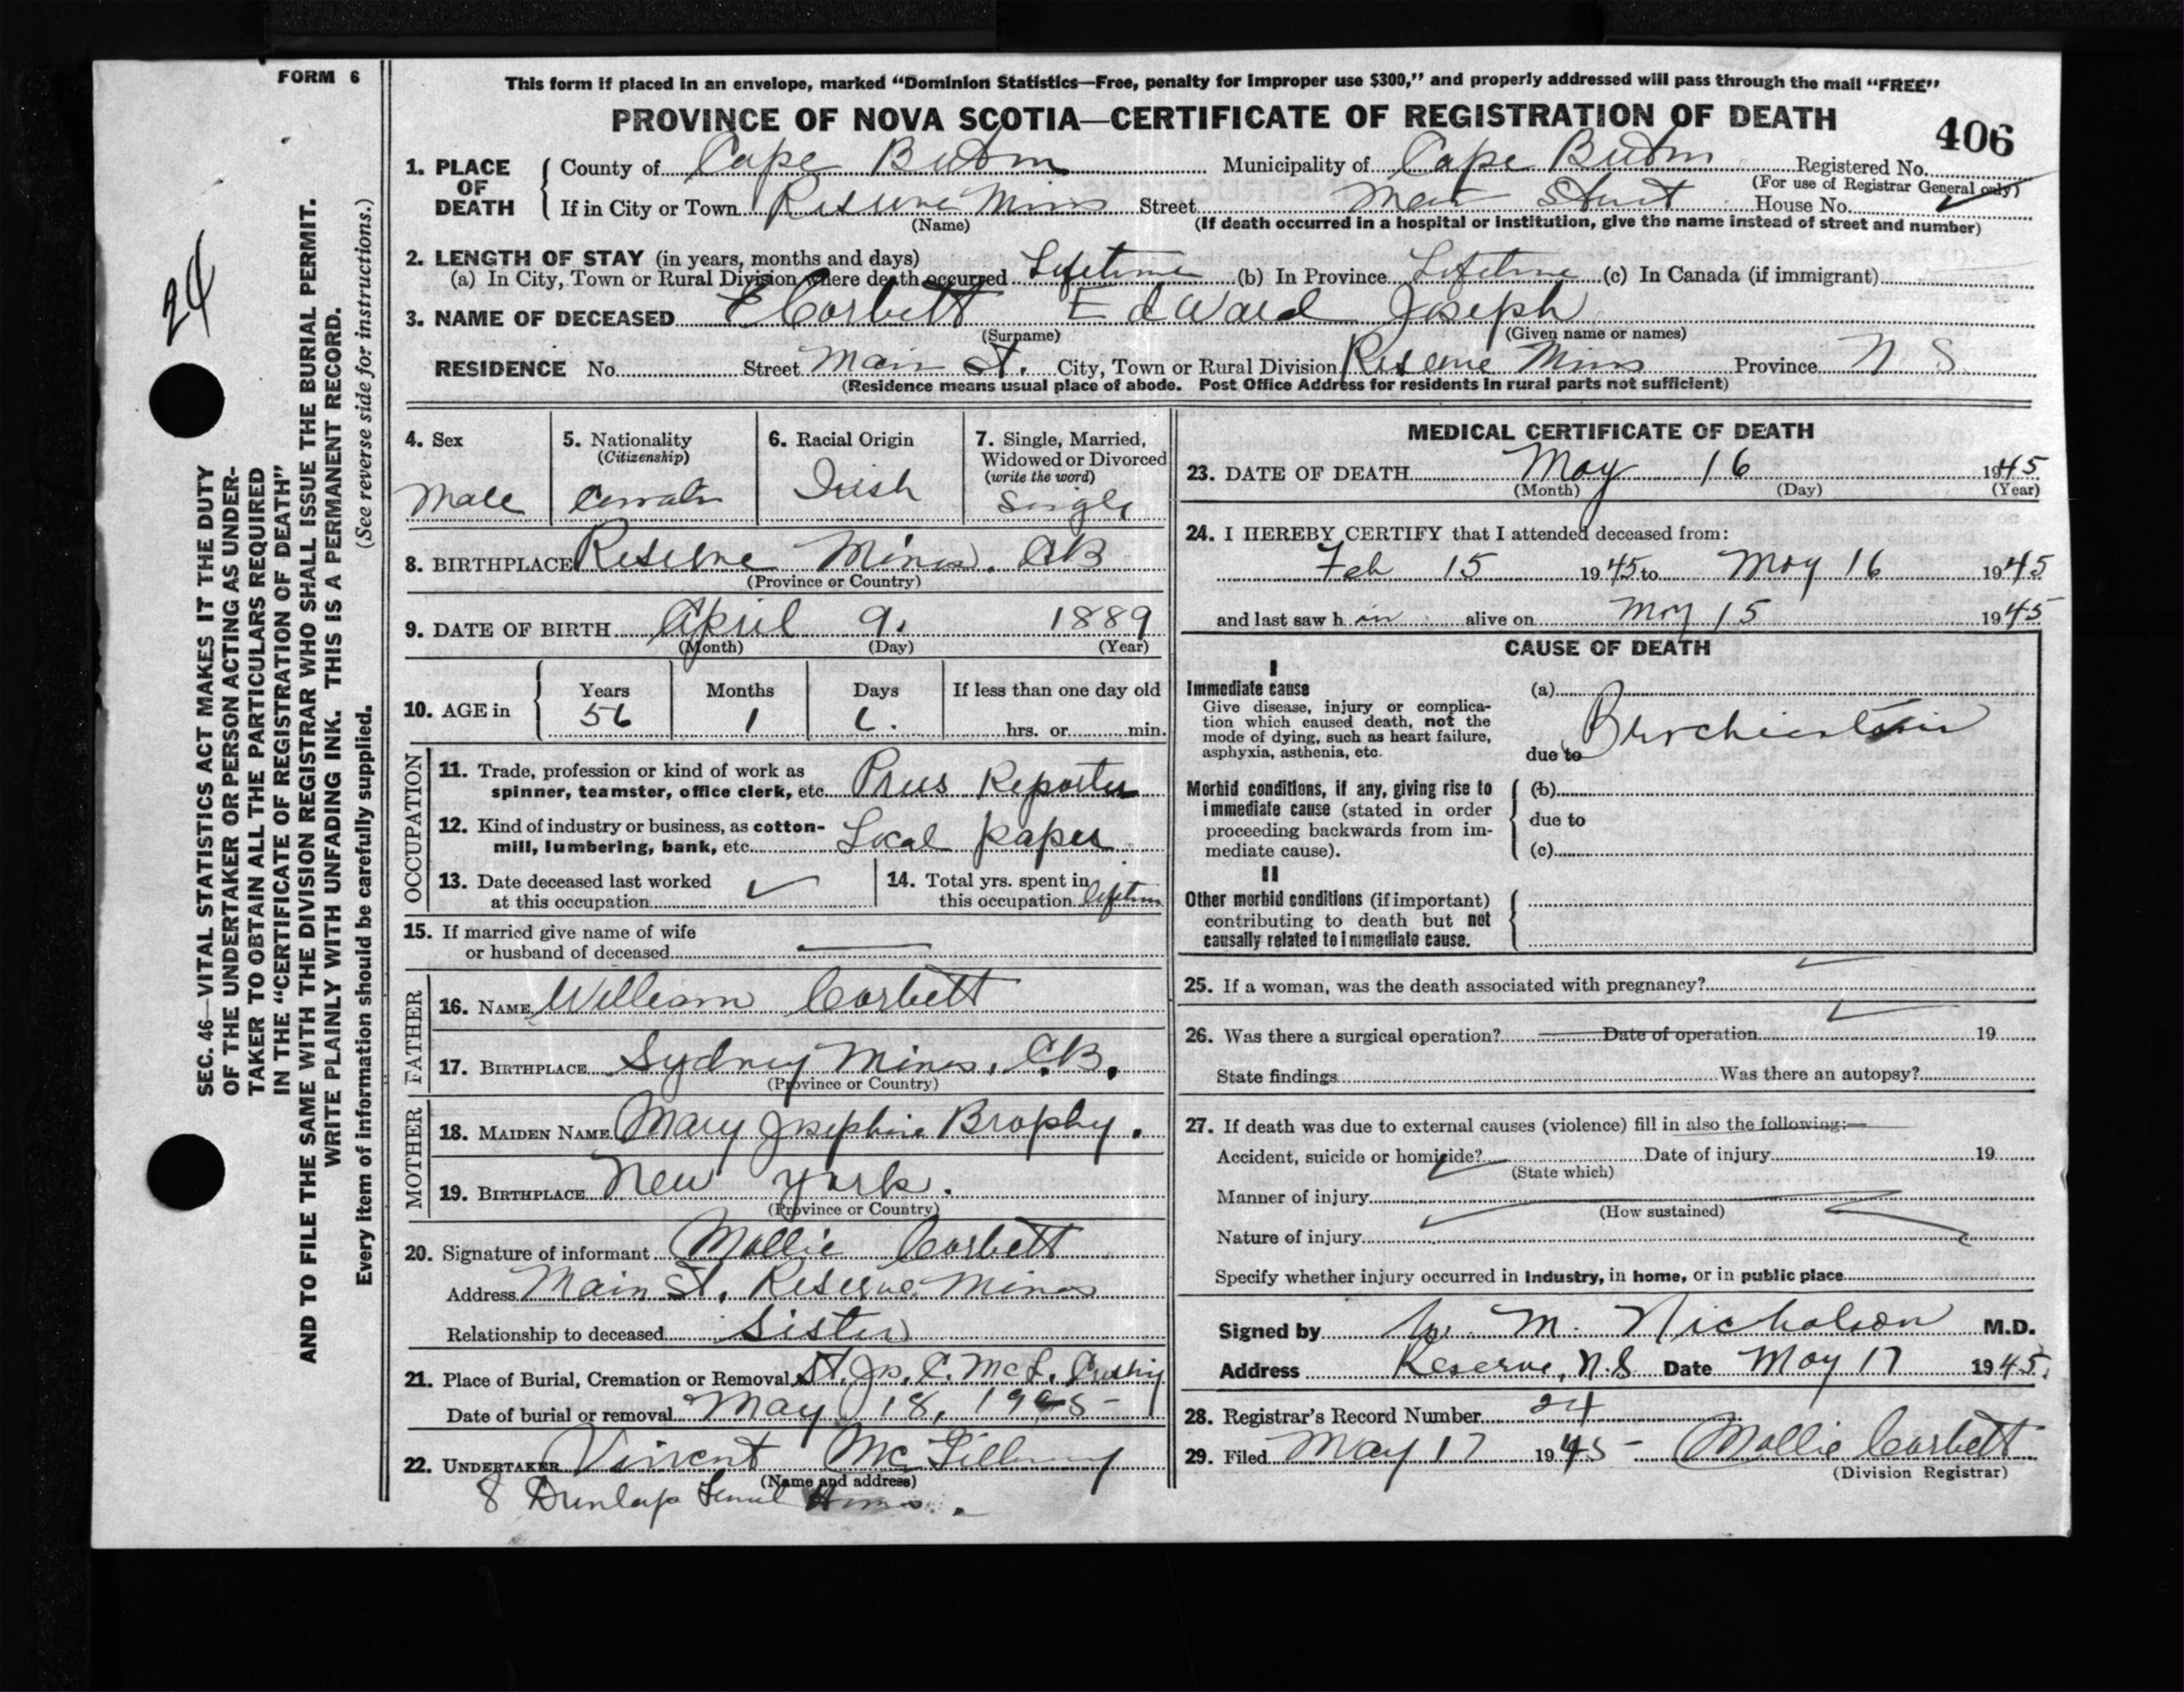 FORM 6
This form if placed in an envelope, marked “Dominion Statistics—Free, penalty for improper use $300,” and properly addressed will pass through the mail “FREE”
PROVINCE OF NOVA SCOTIA—CERTIFICATE OF REGISTRATION OF DEATH
406
1. PLACE OF DEATH
County of Cape Breton Municipality of Cape Breton Registered No.
(For use of Registrar General only)
If in City or Town Reserve Mines Street Main Street House No.
(Name) (If death occurred in a hospital or institution, give the name instead of street and number)
2. LENGTH OF STAY (in years, months and days)
(a) In City, Town or Rural Division where death occurred Lifetime (b) In Province Lifetime (c) In Canada (if immigrant)
3. NAME OF DECEASED Corbett Edward Joseph
(Surname) (Given name or names)
RESIDENCE No. Street Main St. City, Town or Rural Division Reserve Mines Province N S
(Residence means usual place of abode. Post Office Address for residents in rural parts not sufficient)
4. Sex
Male
5. Nationality
(Citizenship)
6. Racial Origin
Irish
7. Single, Married,
Widowed or Divorced
(write the word)
Single
8. BIRTHPLACE Reserve Mines. CB
(Province or Country)
9. DATE OF BIRTH April 9. 1889
(Month) (Day) (Year)
10. AGE in
Years Months Days If less than one day old
56 1 hrs. or min.
OCCUPATION
11. Trade, profession or kind of work as
spinner, teamster, office clerk, etc. Press Reporter
12. Kind of industry or business, as cotton-
mill, lumbering, bank, etc. Local paper
13. Date deceased last worked
at this occupation
14. Total yrs. spent in
this occupation lifetime
15. If married give name of wife
or husband of deceased
FATHER
16. NAME William Corbett
17. BIRTHPLACE Sydney Mines, C.B.
(Province or Country)
MOTHER
18. MAIDEN NAME Mary Josephine Brophy.
19. BIRTHPLACE New York.
(Province or Country)
20. Signature of informant Mollie Corbett
Address Main St, Reserve Mines
Relationship to deceased Sister
21. Place of Burial, Cremation or Removal St. Jos. C.
Date of burial or removal May 18, 1945
22. UNDERTAKER Vincent
(Name and address)
8 Dunlap
MEDICAL CERTIFICATE OF DEATH
23. DATE OF DEATH May 16 1945
(Month) (Day) (Year)
24. I HEREBY CERTIFY that I attended deceased from:
Feb 15 1945 to May 16 1945
and last saw h im alive on May 15 1945
CAUSE OF DEATH
I
Immediate cause
Give disease, injury or complica-
tion which caused death, not the
mode of dying, such as heart failure,
asphyxia, asthenia, etc.
(a)
due to
Morbid conditions, if any, giving rise to
immediate cause (stated in order
proceeding backwards from im-
mediate cause).
(b)
due to
(c)
II
Other morbid conditions (if important)
contributing to death but not
causally related to immediate cause.
25. If a woman, was the death associated with pregnancy?
26. Was there a surgical operation? Date of operation 19
State findings Was there an autopsy?
27. If death was due to external causes (violence) fill in also the following:—
Accident, suicide or homicide? Date of injury 19
(State which)
Manner of injury
(How sustained)
Nature of injury
Specify whether injury occurred in industry, in home, or in public place
Signed by M. Nicholson M.D.
Address Reserve, N.S Date May 17 1945.
28. Registrar's Record Number 24
29. Filed May 17 1945 Mollie Corbett
(Division Registrar)
24
SEC. 46—VITAL STATISTICS ACT MAKES IT THE DUTY
OF THE UNDERTAKER OR PERSON ACTING AS UNDER-
TAKER TO OBTAIN ALL THE PARTICULARS REQUIRED
IN THE “CERTIFICATE OF REGISTRATION OF DEATH”
AND TO FILE THE SAME WITH THE DIVISION REGISTRAR WHO SHALL ISSUE THE BURIAL PERMIT.
WRITE PLAINLY WITH UNFADING INK. THIS IS A PERMANENT RECORD.
Every item of information should be carefully supplied. (See reverse side for instructions.)